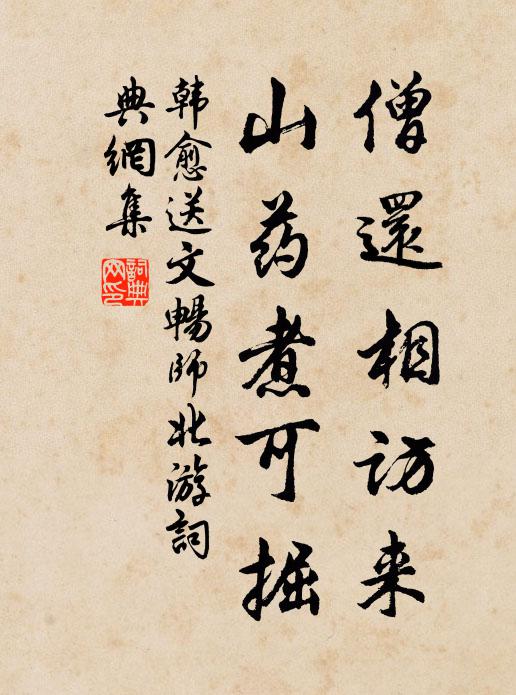 僧還相访来
山药煮可掘
韩愈送文暢師北游詞
典網集
詞典网印